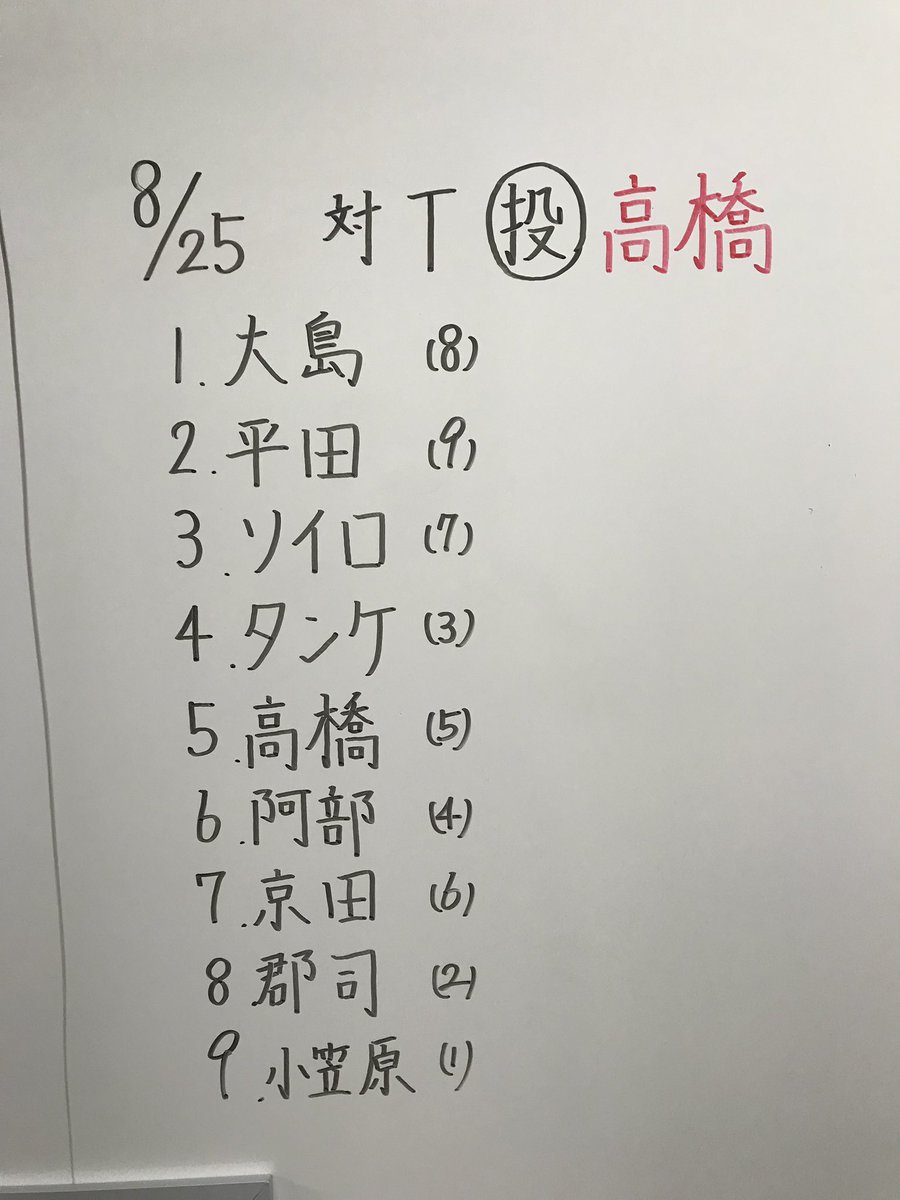 8/25 対T 投 高橋
1.大島 (8)
2.平田 (9)
3.ソイロ (7)
4.タンケ (3)
5.高橋 (5)
6.阿部 (4)
7.京田 (6)
8 郡司 (2)
9.小笠原 (1)